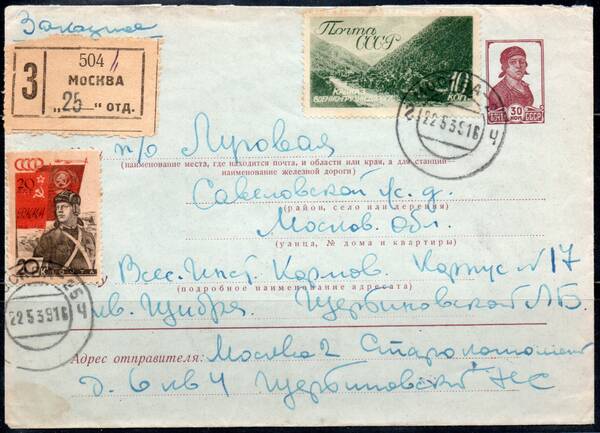 Заказное
504
З
МОСКВА
„25“ отд.
Почта
СССР
КАВКАЗ
10
КОП.
МОСКВА
22 5 39 16
Ч
30
КОП.
СССР
п/о Луговая
(наименование места, где находится почта, и области или края, а для станций—
наименование железной дороги)
Савеловской ж. д.
(район, село или деревня)
Москов. обл.
(улица, № дома и квартиры)
СССР
20
РККА
20
ПОЧТА
Всес. Инст. Кормов. Корпус №17
(подробное наименование адресата)
кв. Щербиновской Л.Б.
22 5 39 16
Ч
Адрес отправителя: Москва 2
д. 6 кв 4 Щербиновский НС